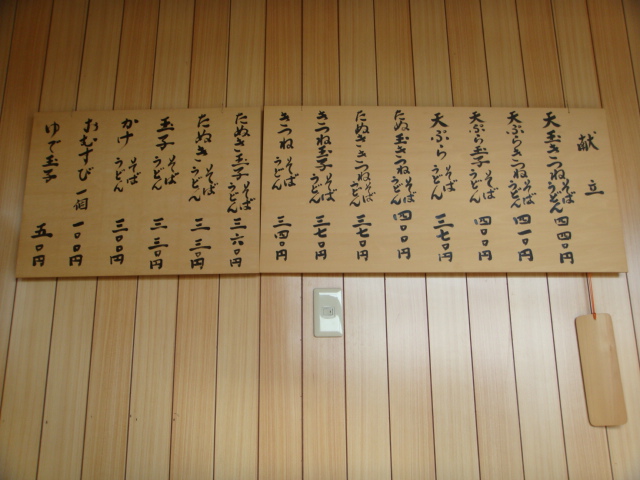 献立
天玉きつね そば うどん 四四〇円
天ぷらきつね そば うどん 四一〇円
天ぷら玉子 そば うどん 四〇〇円
天ぷら そば うどん 三七〇円
たぬ玉きつね そば うどん 四〇〇円
たぬききつね そば うどん 三七〇円
きつね玉子 そば うどん 三七〇円
きつね そば うどん 三四〇円
たぬき玉子 そば うどん 三六〇円
たぬき そば うどん 三三〇円
玉子 そば うどん 三三〇円
かけ そば うどん 三〇〇円
おむすび 一個 一〇〇円
ゆで玉子 五〇円